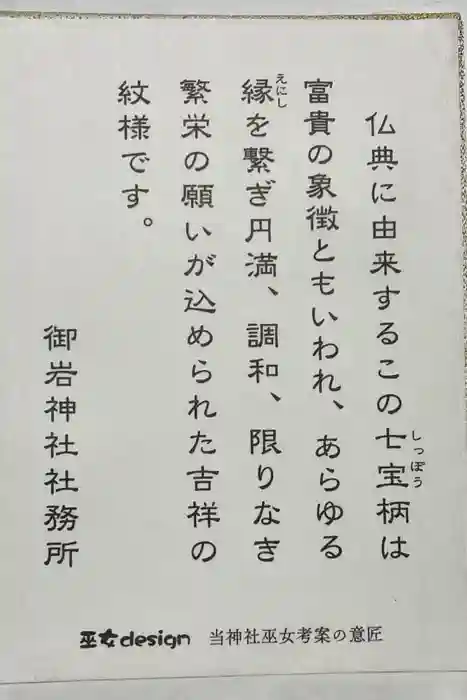 仏典に由来するこの七宝柄は
しっぽう
富貴の象徴ともいわれ、あらゆる
縁を繋ぎ円満、調和、限りなき
えにし
繁栄の願いが込められた吉祥の
紋様です。
御岩神社社務所
巫女design 当神社巫女考案の意匠